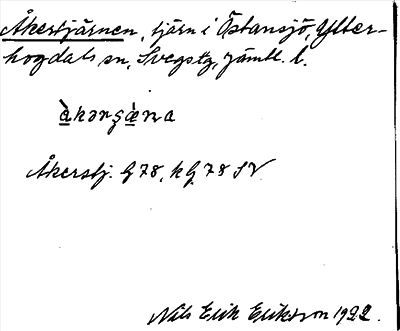 Åkerstjärnen, tjärn i Östansjö, Ytter-
hogdals sn, Svegs tg, Jämtl. l.
àkərʂæ̀na
Åkerstj. G 78, k G. 78 SV
Nils Erik Eriksson 1922.